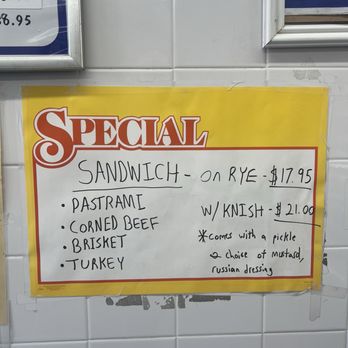 8.95
SPECIAL
SANDWICH - on RYE - $17.95
• PASTRAMI
• CORNED BEEF
• BRISKET
• TURKEY
W/ KNISH - $21.00
*comes with a pickle
& choice of mustard,
russian dressing